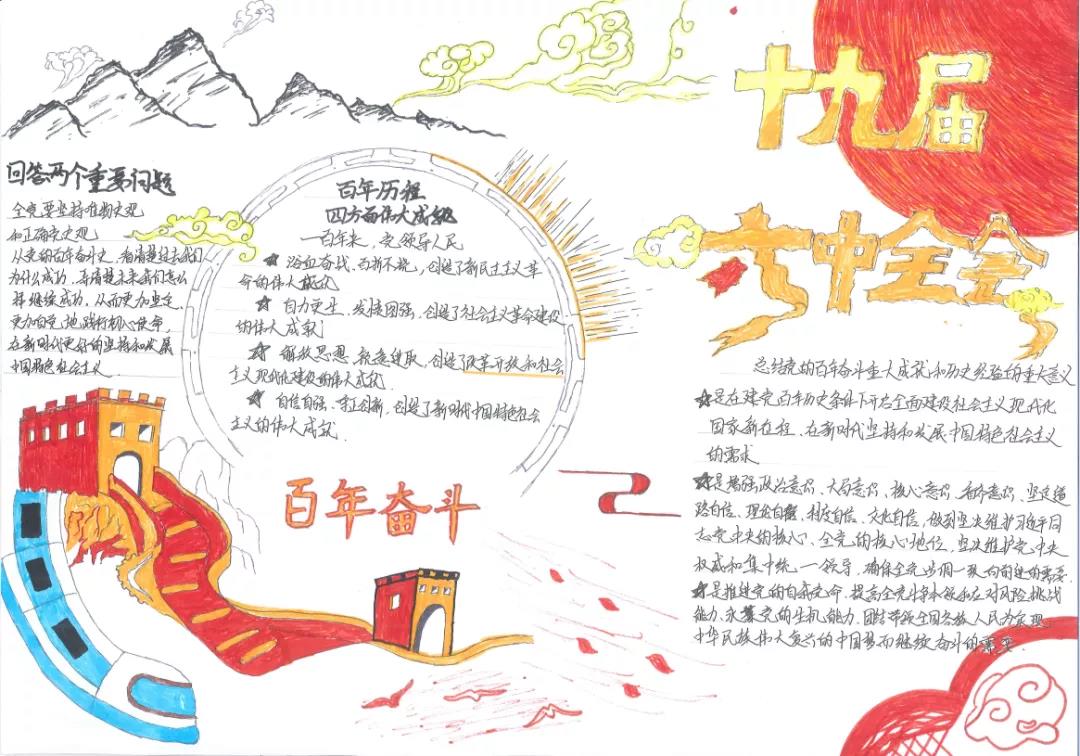 十九届
六中全会
回答两个重要问题
全党要坚持唯物史观
和正确党史观
从党的百年奋斗史，看清楚过去我们
为什么成功，弄清楚未来我们怎么
样继续成功，从而更加坚定、
更加自觉地践行初心使命，
在新时代更好的坚持和发展
中国特色社会主义
百年历程
四方面伟大成就
一百年来，党领导人民
浴血奋战、百折不挠，创造了新民主主义革
命的伟大成就
自力更生、发愤图强，创造了社会主义革命建设
的伟大成就
解放思想、锐意进取，创造了改革开放和社会
主义现代化建设的伟大成就
自信自强、守正创新，创造了新时代中国特色社会
主义的伟大成就.
百年奋斗
总结党的百年奋斗重大成就和历史经验的重大意义
是在建党百年历史条件下开启全面建设社会主义现代化
国家新征程、在新时代坚持和发展中国特色社会主义
的需求
是增强政治意识、大局意识、核心意识、看齐意识、坚定道
路自信、理论自信、制度自信、文化自信，做到坚决维护习近平同
志党中央的核心、全党的核心地位，坚决维护党中央
权威和集中统一领导，确保全党步调一致向前进的需要
是推进党的自我革命、提高全党斗争本领和应对风险挑战
能力、永葆党的生机能力、团结带领全国各族人民为实现
中华民族伟大复兴的中国梦而继续奋斗的需要.